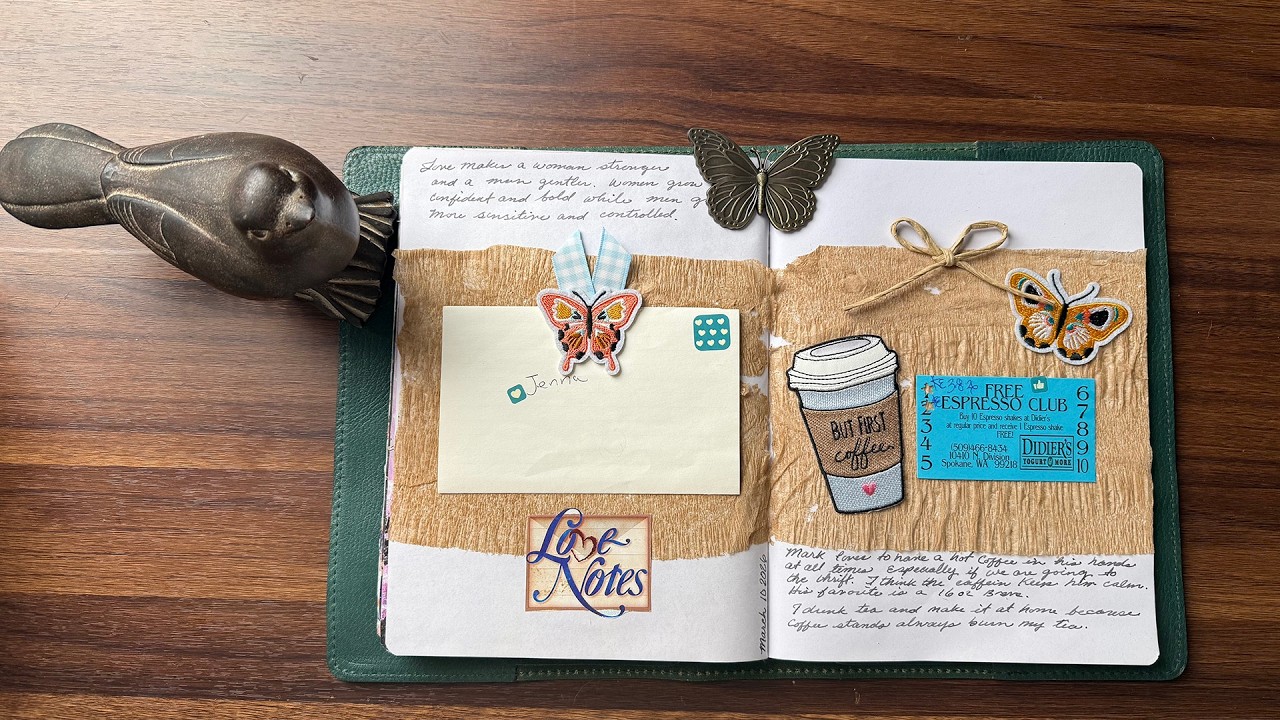 Love makes a woman stronger
and a man gentler. Women grow
confident and bold while men g
more sensitive and controlled.
Jenna
Love
Notes
March 10 2026
BUT FIRST
coffee
FREE
ESPRESSO CLUB
Buy 10 Espresso shakes at Didier's
at regular price and receive 1 Espresso shake
FREE!
(509)466-8434
10410 N. Division
Spokane, WA 99218
DIDIER'S
YOGURT & MORE
2
3
4
5
6
7
8
9
10
Mark loves to have a hot coffee in his hands
at all times. Especially if we are going to
the thrift. I think the caffein keeps him calm.
His favorite is a 16 oz Breve.
I drink tea and make it at home because
coffee stands always burn my tea.